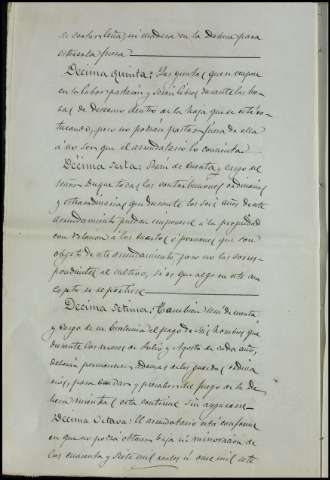 de cortar leña, ni madera en la dehesa para
sacarla fuera
Decima quinta: Las yuntas que se ocupen
en la labor pastarán y serán libres durante las ho-
ras de descanso dentro de la hoja que se esté
pero no podrán pastar fuera de ella
a no ser que el arrendatario lo consienta
Decima sexta: Serán de cuenta y cargo del
Señor Duque todas las contribuciones ordinarias
y extraordinarias que durante los seis años de este
arrendamiento puedan imponerse a la propiedad
con relacion a los cuartos ó porciones que son
objeto de este arrendamiento, pero no las corres-
pondientes al cultivo, si es que algo en este con-
cepto se
Decima setima: Tambien será de cuenta
y cargo de su Excelencia el pago de seis hombres que
durante los meses de Julio y Agosto de cada año,
deberán permanecer, ademas de los guardas ordina-
rios, para cuidar y precaber del fuego a la De-
hesa mientras esta continue sin
Decima Octava: El arrendatario está conforme
en que no podrá obtener baja ni minoracion de
los cuarenta y siete mil reales ú once mil sete